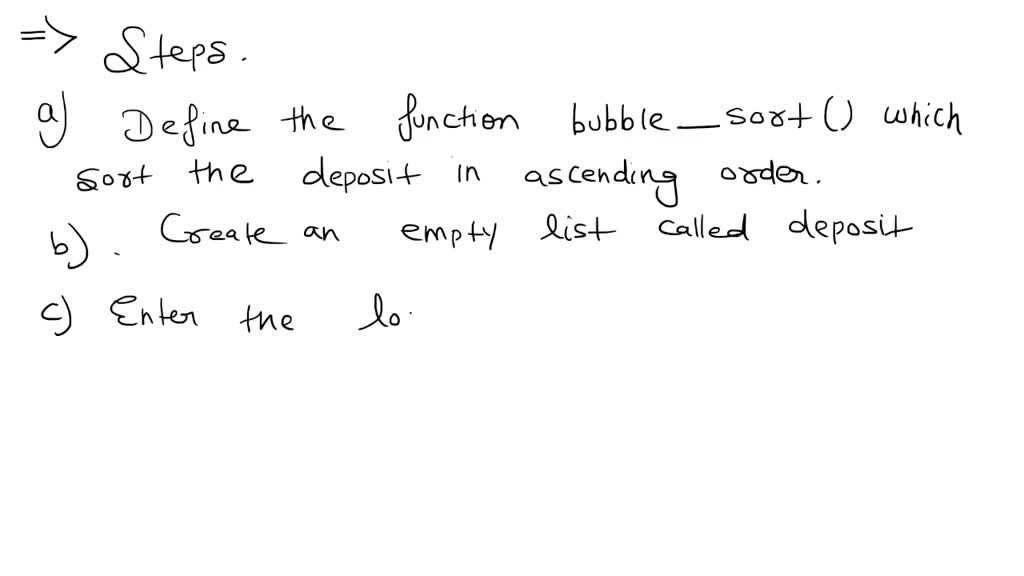 => Steps.
a) Define the function bubble_sort() which
sort the deposit in ascending order.
b). Create an empty list called deposit
c) Enter the lo